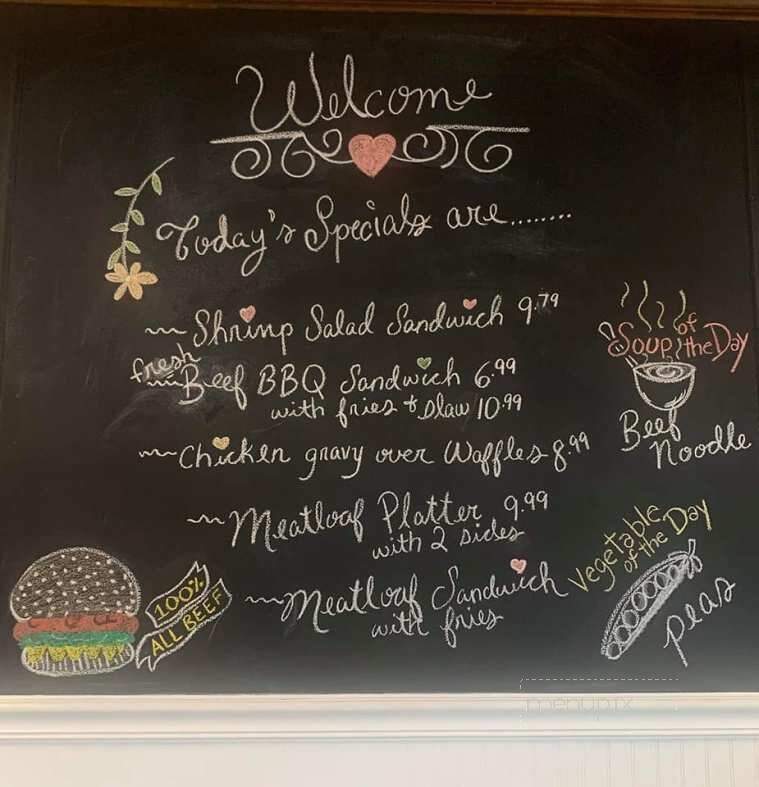 Welcome
Today's Specials are........
Shrimp Salad Sandwich 9.79
fresh
Beef BBQ Sandwich 6.99
with fries & slaw 10.99
Chicken gravy over Waffles 8.99
Meatloaf Platter 9.99
with 2 sides
Meatloaf Sandwich
with fries
Soup of
the Day
Beef
Noodle
Vegetable
of the Day
peas
100%
ALL BEEF
menupix